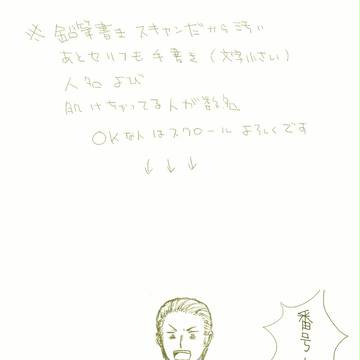 ※ 鉛筆書き スキャンだから汚い
あとセリフも手書き(文字小さい)
人名 よび
肌けちゃってる人が数名
OKな人はスクロール よろしくです
↓ ↓ ↓
番号